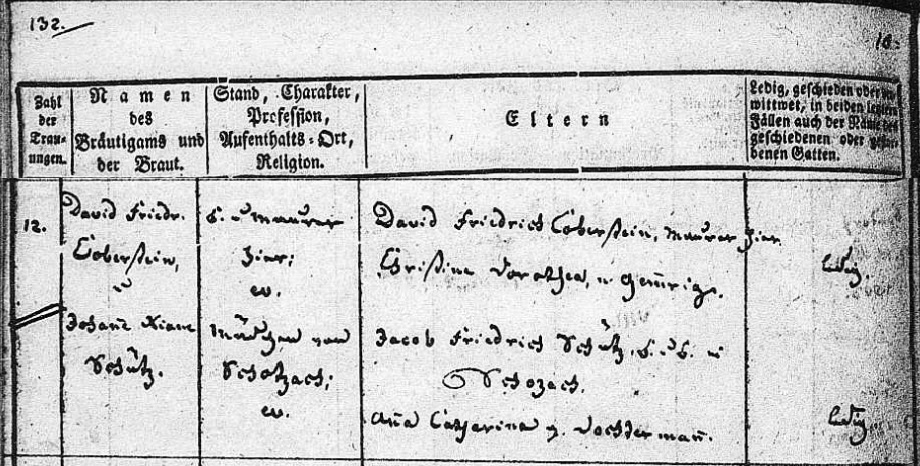 132.
Zahl
der
Trau-
ungen.
Namen
des
Bräutigams und
der Braut.
Stand, Charakter,
Profession,
Aufenthalts-Ort,
Religion.
Eltern
Ledig, geschieden oder
wittwet, in beiden
Fällen auch der
geschiedenen oder
benen Gatten.
12.
David Friedr.
Coberstein,
u
Johañe
Schütz.
B. u Maurer
hier;
ev.
Mädchen von
Schotzach;
ev.
David Friedrich Coberstein, Maurer hier
Christina Dorothea, n.
Jacob Friedrich Schütz, B. u B. in
Schozach.
Aña Catharina g.
ledig.
ledig